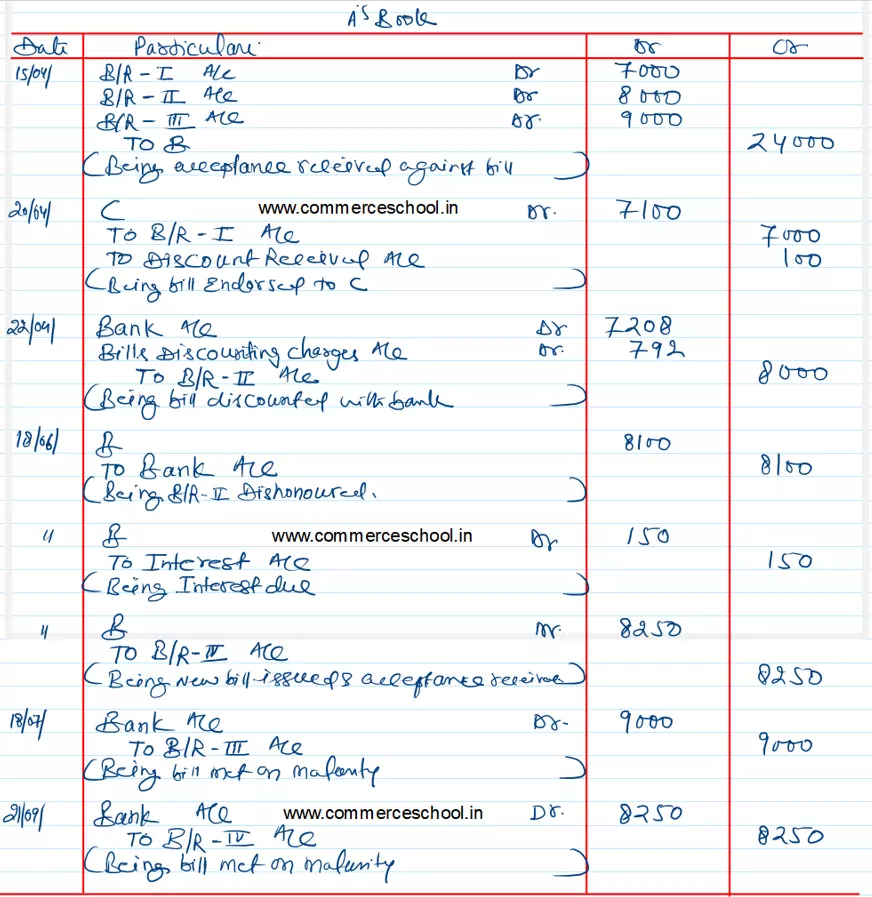 A's Book
Date Particulars Dr Cr
15/04/ B/R - I A/c Dr 7000
B/R - II A/c Dr 8000
B/R - III A/c Dr. 9000
To B 24000
(Being acceptance received against bill)
20/04/ C www.commerceschool.in Dr. 7100
To B/R - I A/c 7000
To Discount Received A/c 100
(Being bill Endorsed to C)
22/04/ Bank A/c Dr 7208
Bills Discounting charges A/c Dr. 792
To B/R - II A/c 8000
(Being bill discounted with bank)
18/06/ B 8100
To Bank A/c 8100
(Being B/R - II Dishonoured.)
" B www.commerceschool.in Dr 150
To Interest A/c 150
(Being Interest due)
" B Dr. 8250
To B/R - IV A/c
(Being New bill issued & acceptance received) 8250
18/07/ Bank A/c Dr- 9000
To B/R - III A/c 9000
(Being bill met on maturity)
21/09/ Bank A/c www.commerceschool.in Dr. 8250
To B/R - IV A/c 8250
(Being bill met on maturity)